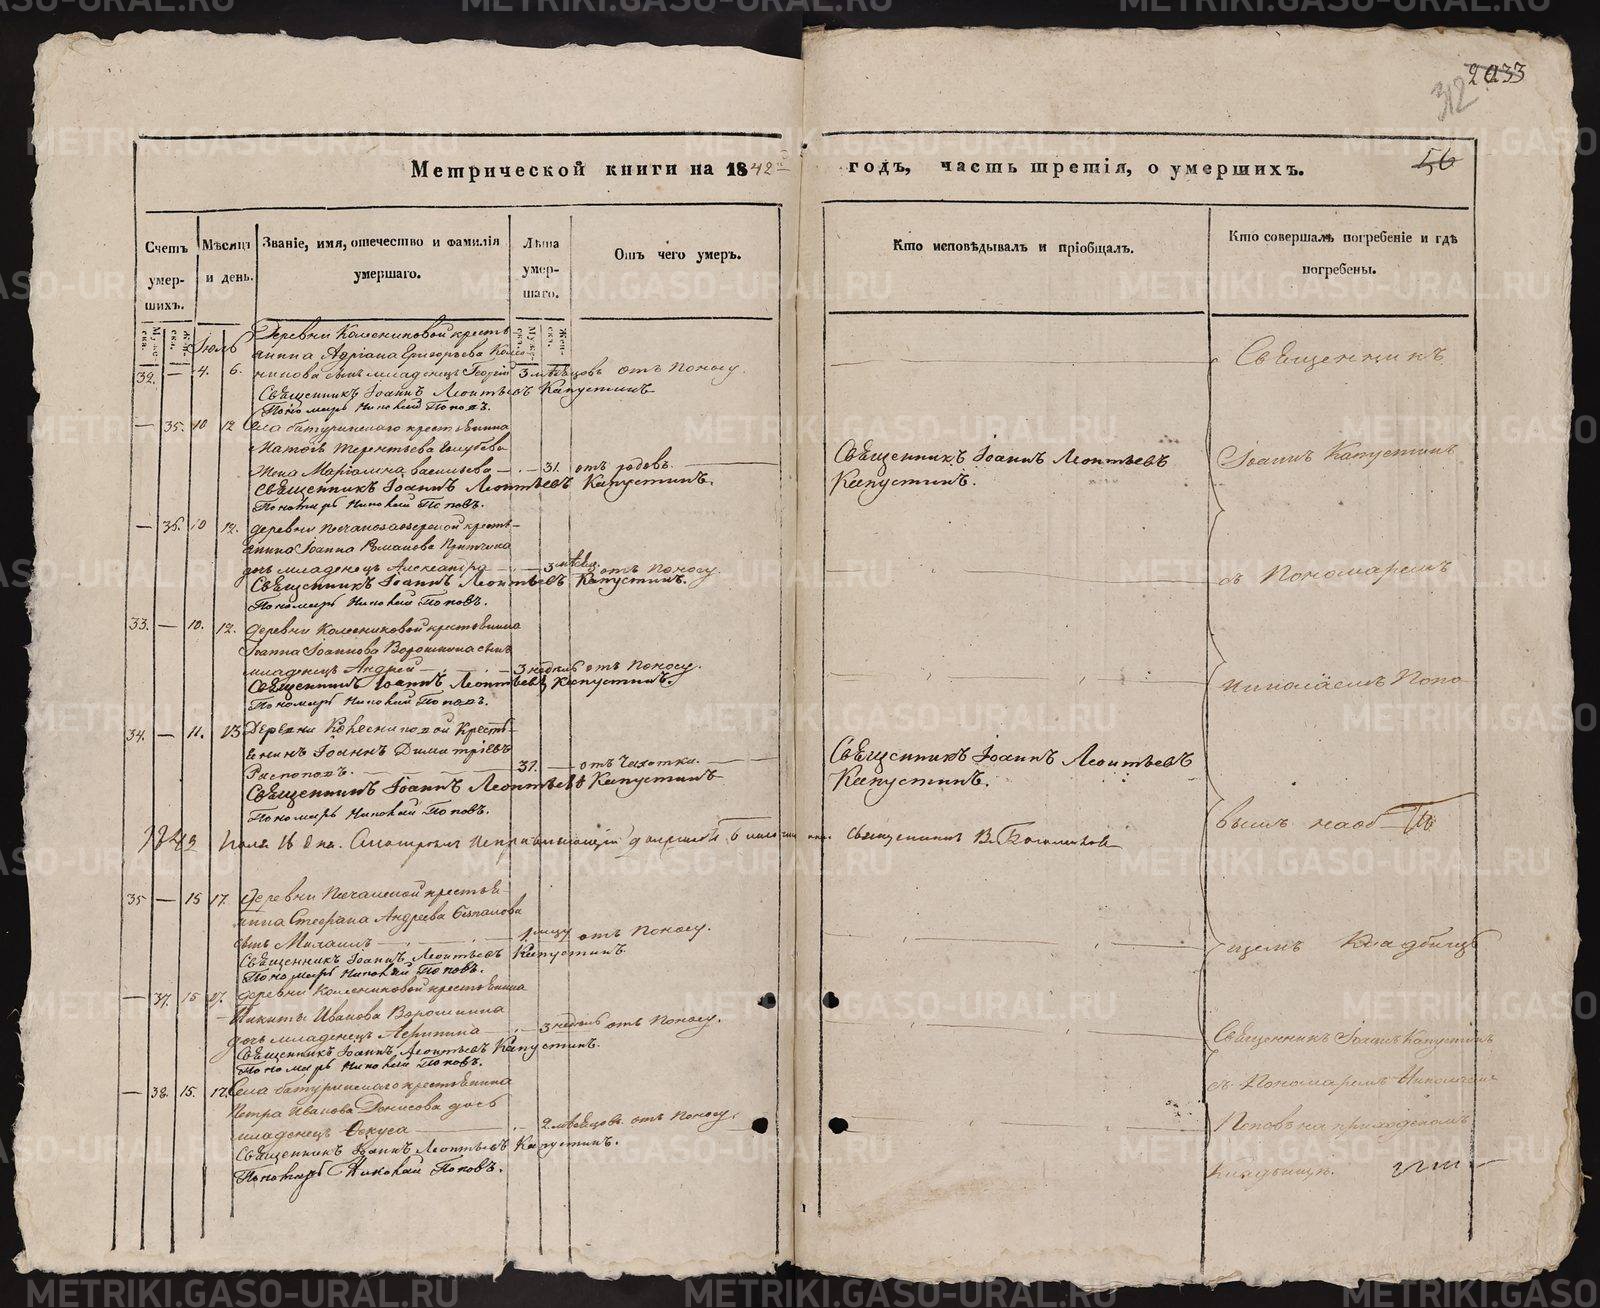 2033
312
Метрической книги на 1842
годъ, часть третія, о умершихъ.
56
Счетъ умер-шихъ.
Мѣсяцъ и день.
Званіе, имя, отечество и фамилія умершаго.
Лѣта умер-шаго.
Отъ чего умеръ.
Кто исповѣдывалъ и пріобщалъ.
Кто совершалъ погребеніе и гдѣ погребены.
Іюль
Деревни Колесниковой кресть
янина Адріана Григорьева Колес
32. — 4. 6. никова сынъ младенецъ Георгій 3 мѣсяцовъ отъ поносу.
Священникъ Іоаннъ Леонтьевъ Капустинъ
Пономарь Николай Поповъ.
— 35. 10 12 Села батуринского крестьянина
Терентьева Голубева
жена Маріамна васильева — 31. отъ родовъ.
Священникъ Іоаннъ Леонтьевъ Капустинъ.
Пономарь Николай Поповъ.
— 36. 10 12. деревни кресть-
янина Іоанна Романова
дочь младенецъ Александра — 3 мѣсяц. отъ поносу.
Священникъ Іоаннъ Леонтьевъ Капустинъ.
Пономарь Николай Поповъ.
33. — 10. 12. деревни Колесниковой крестьянина
Іоанна Іоаннова Ворошнина сынъ
младенецъ Андрей — 3 недѣль отъ поносу.
Священникъ Іоаннъ Леонтьевъ Капустинъ.
Пономарь Николай Поповъ.
34. — 11. 13 Деревни Колесниковой Кресть
янинъ Іоаннъ Димитріевъ
Распоповъ. 37. — отъ Чахотки.
Священникъ Іоаннъ Леонтьевъ Капустинъ
Пономарь Николай Поповъ.
1842 Іюля 16 дня. Смотрѣлъ
Священникъ В.
35 — 15 17. Деревни Песчаной крестья
нина Стефана Андреева
сынъ Михаилъ — 1 мцу отъ поносу.
Священникъ Іоаннъ Леонтьевъ Капустинъ
Пономарь Николай Поповъ.
— 37. 15 17. деревни Колесниковой крестьянина
Никиты Иванова Ворошнина
дочь младенецъ Агрипина — 3 недѣль отъ поносу.
Священникъ Іоаннъ Леонтьевъ Капустинъ.
Пономарь Николай Поповъ.
— 38. 15. 17. Села батуринского крестьянина
Петра Иванова Денисова дочь
младенецъ Фекуса — 2 мѣсяцовъ отъ поносу.
Священникъ Іоаннъ Леонтьевъ Капустинъ.
Пономарь Николай Поповъ.
Священникъ Іоаннъ Леонтьевъ
Капустинъ.
Священникъ Іоаннъ Леонтьевъ
Капустинъ.
Священникъ
Іоаннъ Капустинъ
съ Пономаремъ
Николаемъ Попо
вымъ на об
щемъ Кладбищѣ
Священникъ Іоаннъ Капустинъ
съ Пономаремъ Николаемъ
Поповъ на приходскомъ
кладбищѣ.
METRIKI.GASO-URAL.RU